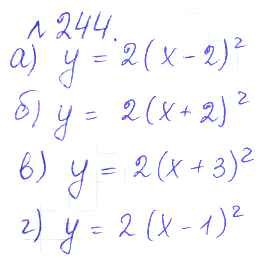 № 244.
а) y = 2(x - 2)²
б) y = 2(x + 2)²
в) y = 2(x + 3)²
г) y = 2(x - 1)²